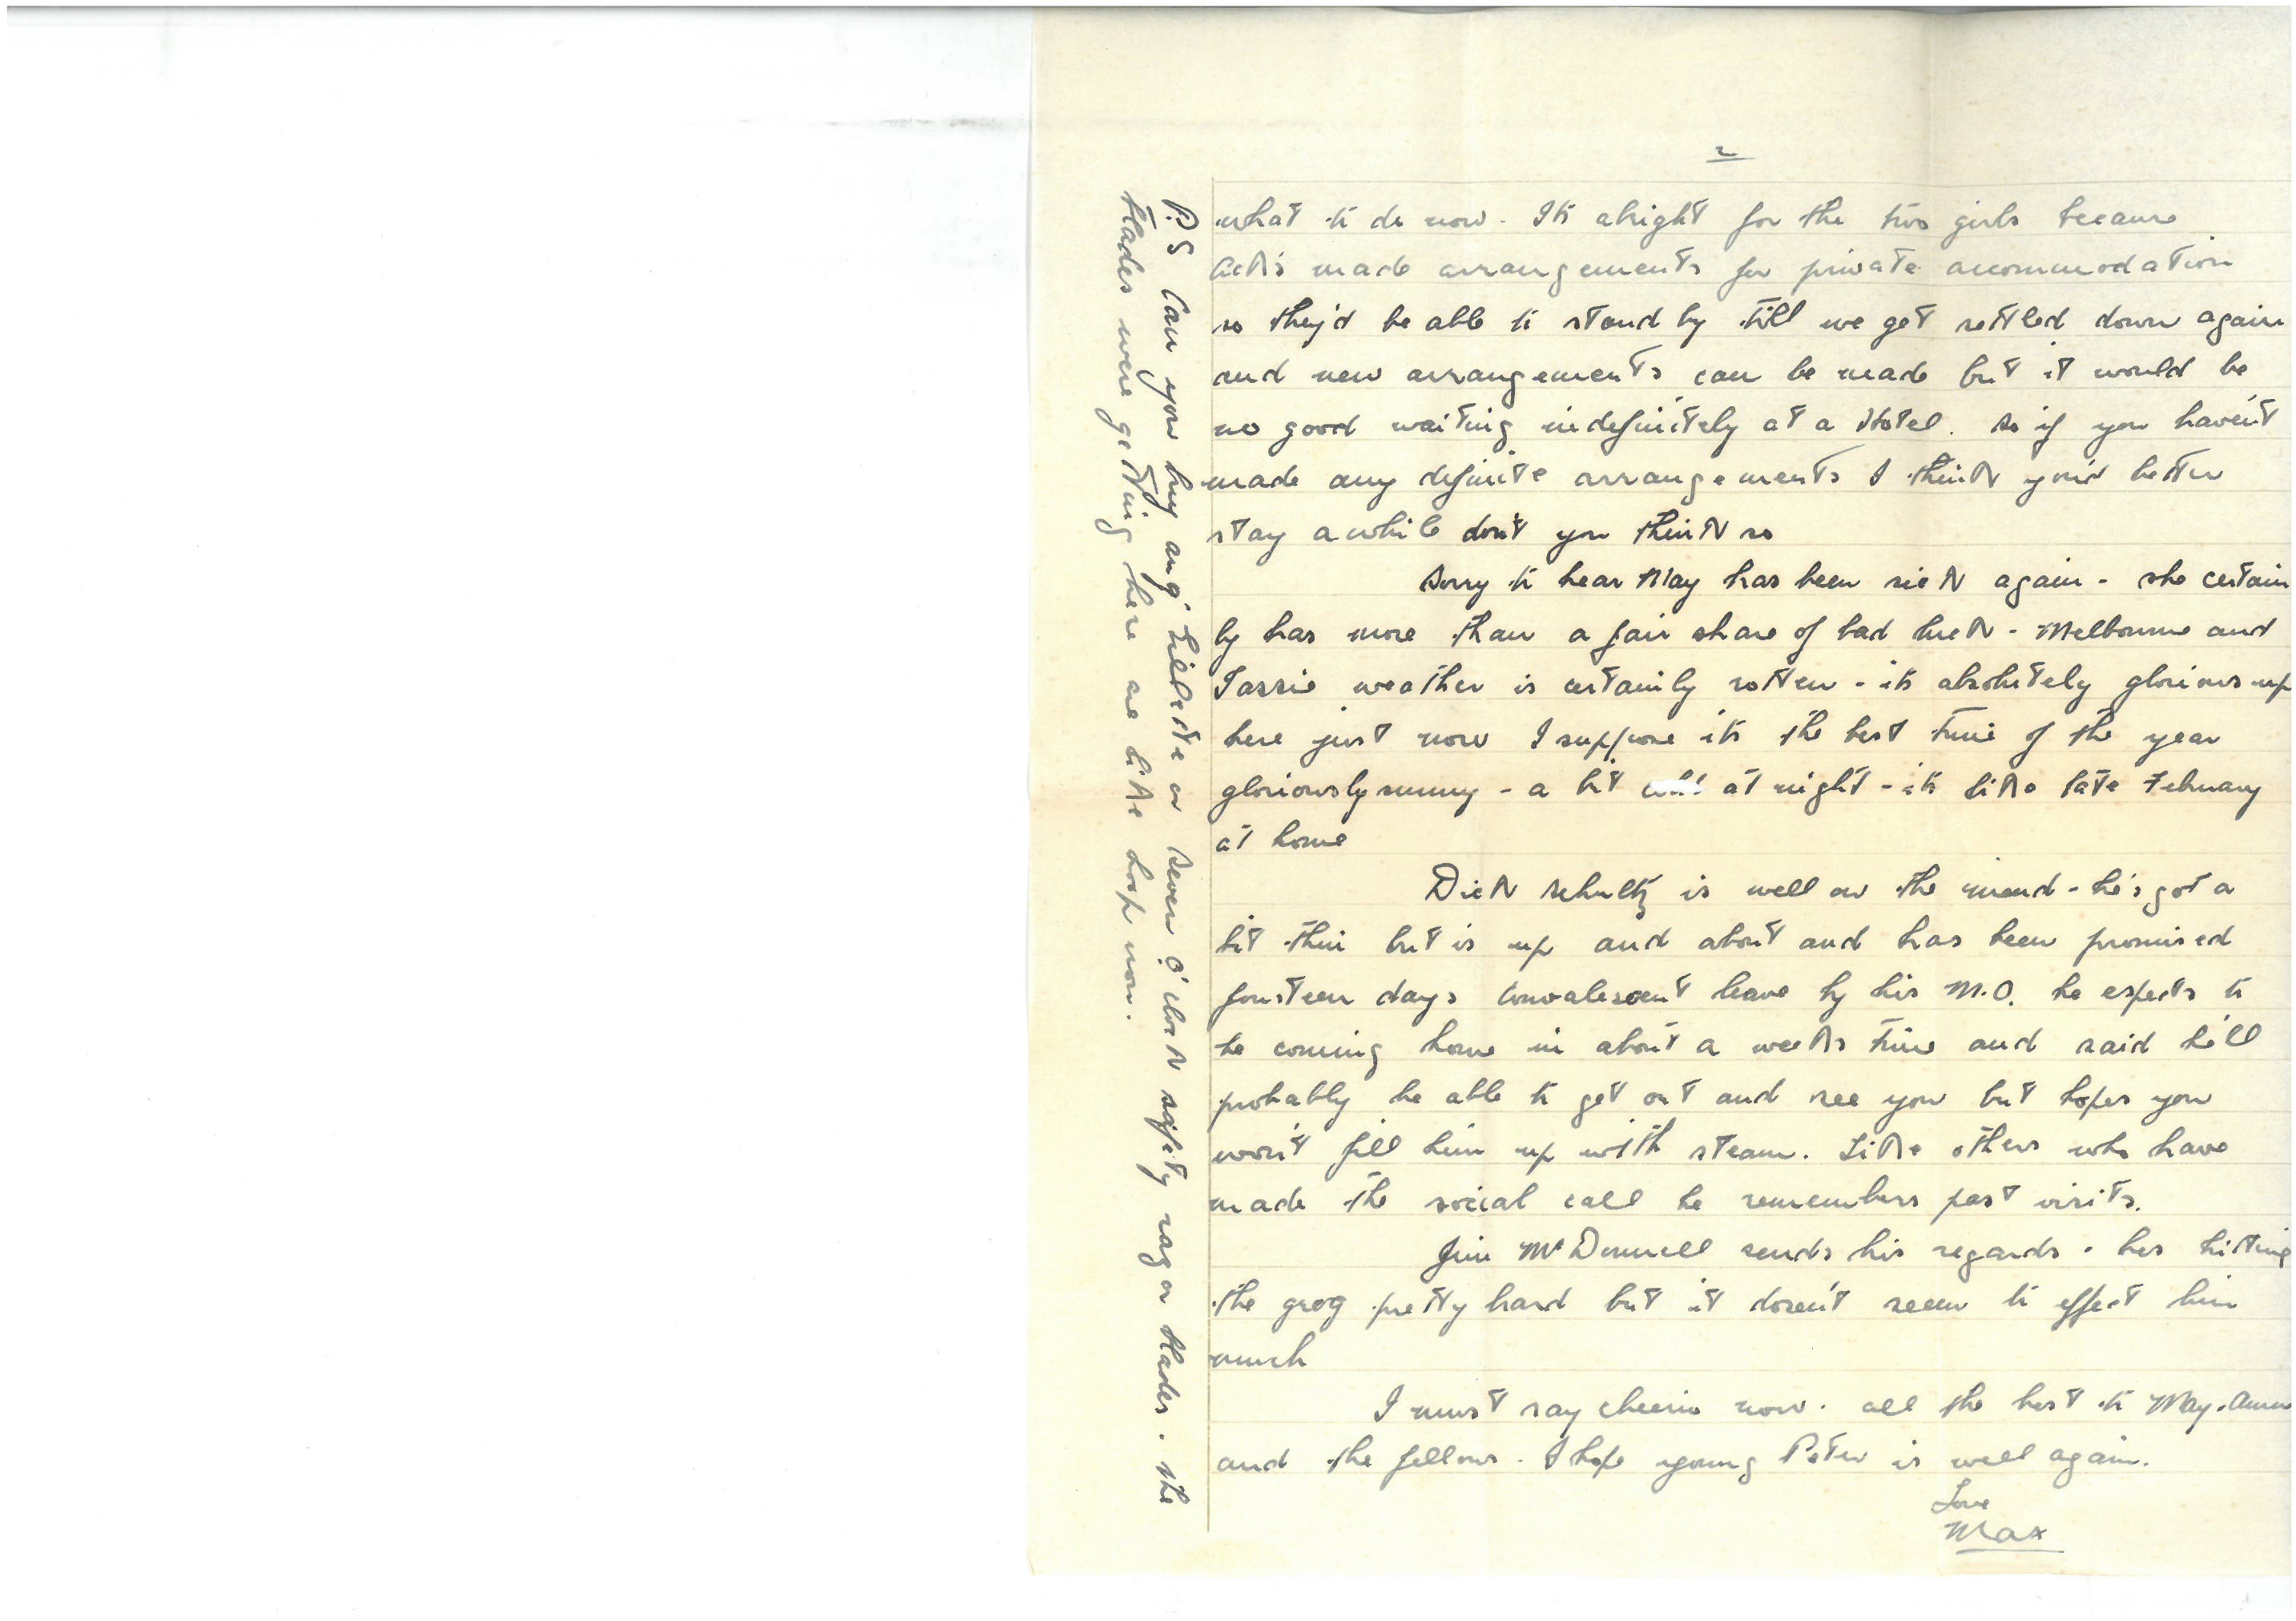 2
what to do now. Its alright for the two girls because
made arrangements for private accommodation
so they'd be able to stand by till we get settled down again
and new arrangements can be made but it would be
no good waiting indefinitely at a Hotel. So if you haven't
made any definite arrangements I think you'd better
stay a while don't you think so
Sorry to hear May has been sick again - she certain
ly has more than a fair share of bad luck - Melbourne and
Tassie weather is certainly rotten - its absolutely glorious up
here just now I suppose its the best time of the year
gloriously sunny - a bit at night - its like late February
at home
Dick Schultz is well on the mend - he's got a
bit thin but is up and about and has been promised
fourteen days convalescent leave by his M.O. he expects to
be coming home in about a weeks time and said he'll
probably be able to get out and see you but hopes you
won't fill him up with steam. Like others who have
made the social call he remembers past visits.
Jim McDonnell sends his regards - hes hitting
the grog pretty hard but it dosen't seem to effect him
much
I must say cheerio now. all the best to May. Anne
and the fellows. I hope young Peter is well again.
Love
Max
P.S Can you buy any Gillette or Seven O'clock safety razor blades. the
blades were getting here are like hoop now.